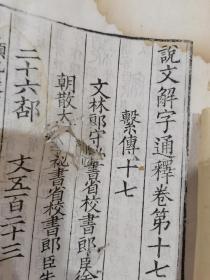 說文解字通釋卷第十七
繫傳十七
文林郎守祕書省校書郎臣徐
朝散大 祕書省校書郎臣朱
二十六部 文五百二十三